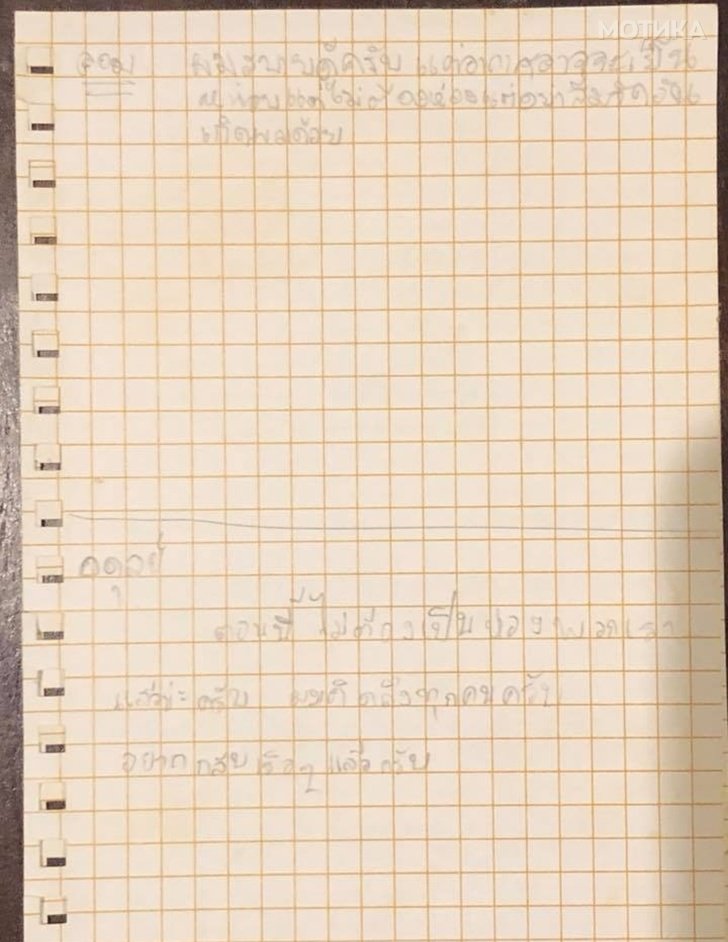 МОТИКА
ดอม ผมสบายดีครับ แต่อากาศอาจจะเย็น
หน่อยแต่ไม่ต้องห่วงแต่อย่าลืมวัน
เกิดผมด้วย
อดุลย์
ตอนนี้ไม่ต้องเป็นห่วงพวกเรา
แล้วนะครับ ผมคิดถึงทุกคนครับ
อยากกลับเร็วๆ แล้วครับ